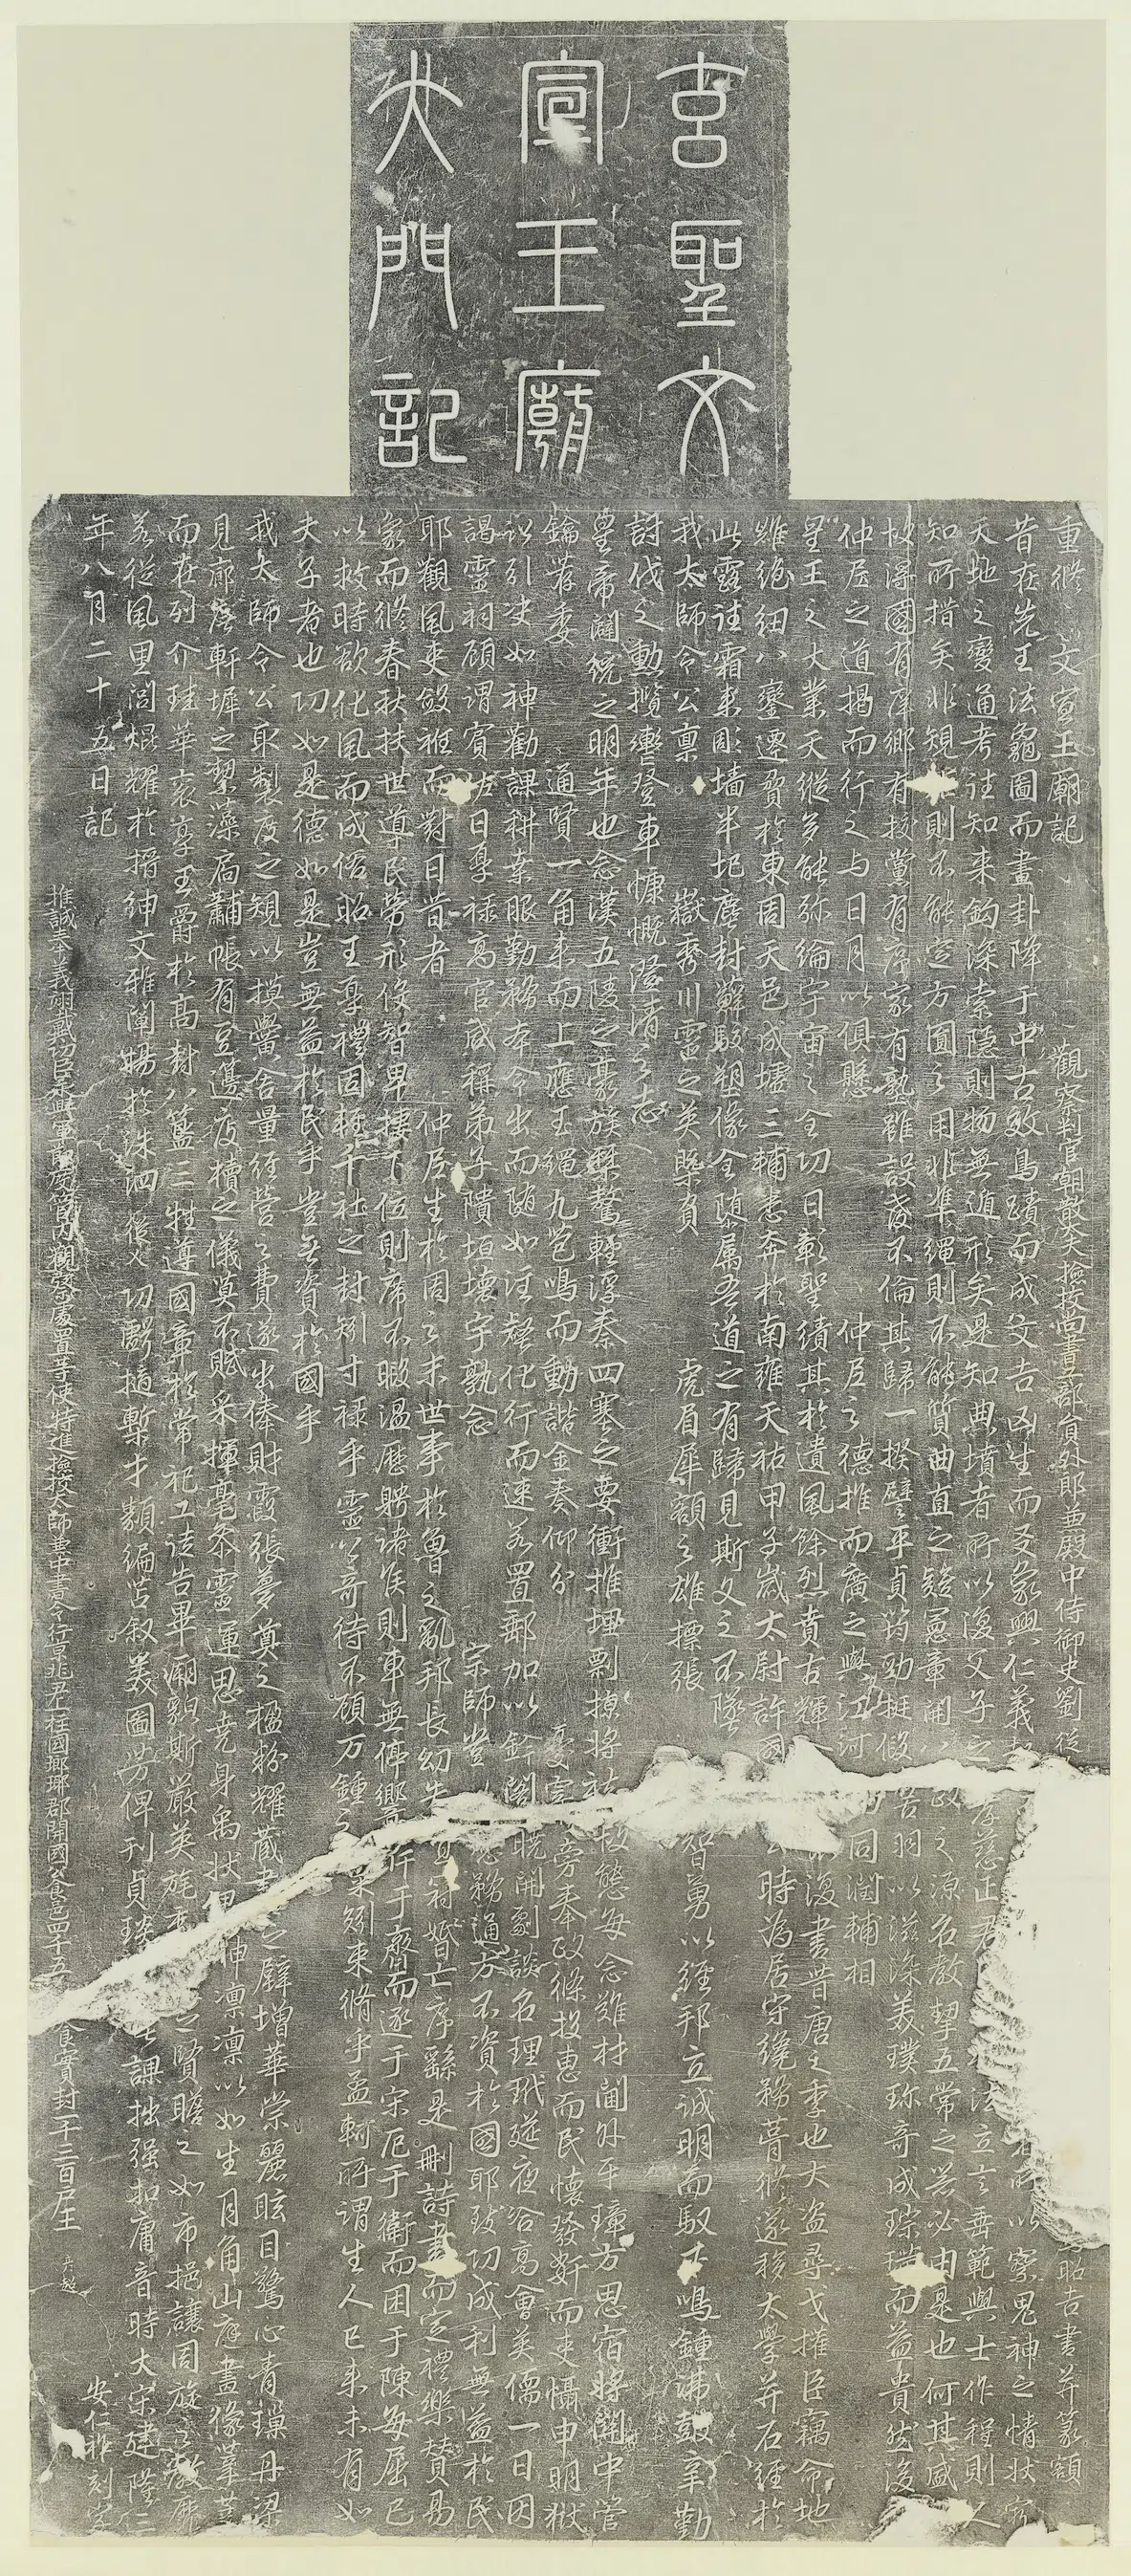 玄聖文
宣王廟
大門記
重脩文宣王廟記 觀察判官朝散大夫撿挍尚書工部員外郎兼殿中侍御史劉從 昭吉書并篆額
昔在先王法龜圖而畫卦降于中古效鳥蹟而成文吉凶生而爻象興仁義 以察鬼神之情狀
天地之變通考往知來鈎深索隱則物無遁形矣是知典墳者所以復父子之孝慈正君 法立言垂範與士作程則人
知所措矣非規 則不能定方圓之用非準繩則不能質曲直之疑憲章開八政之源名教挈五常之 必由是也何其盛
故得國有庠鄉有校黨有序家有塾雖設教不倫其歸一揆譬乎貞筠勁挺假 羽以滋深美璞珎奇成琮璜而益貴然後
仲尼之道揭而行之与日月以俱懸 仲尼之德推而廣之與江河 同潤輔相
皇王之大業天縱多能弥綸宇宙之全功日彰聖績其於遺風餘烈賁古輝 復書昔唐之季也大盜尋戈權臣竊命地
雖絶紐八鑾遷賀於東周天邑成墟三輔悉奔於南雍天祐甲子歲太尉許國 時為居守纔務葺脩遂移太學并石經於
此露往霜來彫墻半圯塵封蘚駮塑像全隳属吾道之有歸見斯文之不墜
我太師令公稟 嶽秀川靈之美槩負 虎眉犀額之雄摽張 智勇以經邦立誠明而馭 鳴鍾沸鼓辛勤
討伐之勳攬轡登車慷慨澄清之志
皇帝闡統之明年也念漢五陵之豪族桀驁輕浮秦四塞之要衝推埋剽掠將 態每念難材閫外平璋方思宿將關中管
鑰荐委 通賢一角来而上應玉繩九苞鳴而動諧金奏仰分 旁奉政條投惠而民懷發奸而吏懾申明獄
訟引决如神勸課耕桒服勤務本令出而隨如注聲化行而速若置郵加以鈐閣 開劇談名理玳筵夜啓高會英儒一日因
謁靈祠顧謂賓佐曰享禄高官咸稱弟子隤垣壞宇孰念 宗師豈 務通方不資於國耶致功成利無益於民
耶觀風吏斂袵而對曰昔者 仲尼生於周之末世事於魯之亂邦長幼失 冠婚亡序繇是刪詩書而定禮樂賛易
象而脩春秋扶世導民勞形役智卑棲下位則席不暇温歷聘諸侯則車無停 于齊而逐于宋厄于衛而困于陳每屈己
以救時欲化風而成俗昭王享禮固輕千社之封矧寸禄乎靈公奇待不顧万鍾之 粟矧束脩乎孟軻所謂生人已来未有如
夫子者也功如是德如是豈無益於民乎豈無資於國乎
我太師令公取製度之規以摸黌舍量經營之費遂出俸財霞張夢奠之楹粉耀藏書之壁增華崇麗眩目驚心青璅丹梁
見廊廡軒墀之挈藻扃黼帳有豆籩庋櫝之儀奠不賦采揮毫叅靈運思堯身禹狀 神凛凛以如生月角山庭畫像業業
而在列介珪華衮享王爵於高封八簋三牲遵國章於常祀工徒告畢廟貌斯嚴英旄 之賢瞻之如市挹讓周旋之教靡
若從風里閭焜耀於搢紳文雅闡揚於洙泗從乂功酹摭槧才纇編苫叙美圖芳俾刋貞珉 課拙强扣庸音時大宋建隆三
年八月二十五日記 安仁祚刻字
推誠奉義翊戴功臣永興軍節度管内觀察處置等使特進撿挍太師兼中書令行京兆尹上柱國瑯瑘郡開國公食邑四千五 食實封一千三百戶王